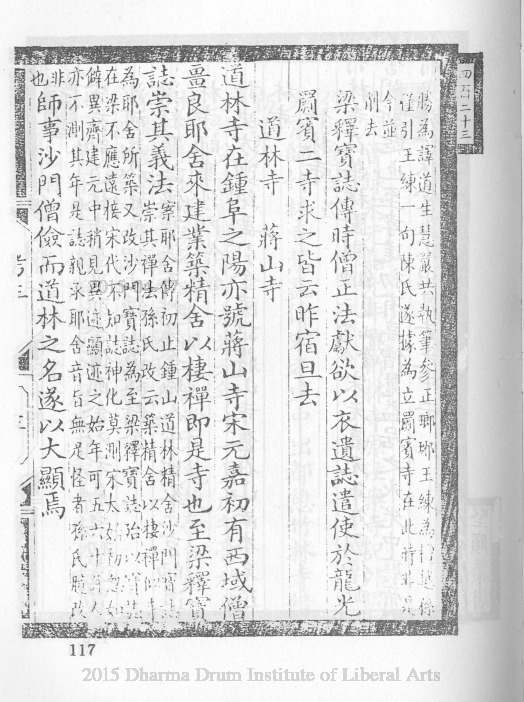 四百二十三
勝為譯道生慧嚴共執筆參正瑯琊王練為檀越徐
僅引王練一句陳氏遂據為立罽賓寺在此時非是
今並
削去
梁釋寶誌傳時僧正法獻欲以衣遺誌遣使於龍光
罽賓二寺求之皆云昨宿旦去
道林寺 蔣山寺
道林寺在鍾阜之陽亦號蔣山寺宋元嘉初有西域僧
畺良耶舍來建業築精舍以棲禪即是寺也至梁釋寶
誌崇其義法案耶舍傳初止鍾山道林精舍沙門寶誌
崇其禪法孫氏改云築精舍以棲禪似寺
為耶舍所築又改沙門寶誌為至梁釋寶誌殆以寶誌
在梁不應遠接宋代不知誌神化莫測宋太始初忽如
僻異齊建元中稍見異迹顯迹之始年可五六十許人
亦不測其年是誌親承耶舍音旨無足怪者孫氏臆改
非
也師事沙門僧儉而道林之名遂以大顯焉
考三
117
2015 Dharma Drum Institute of Liberal Arts